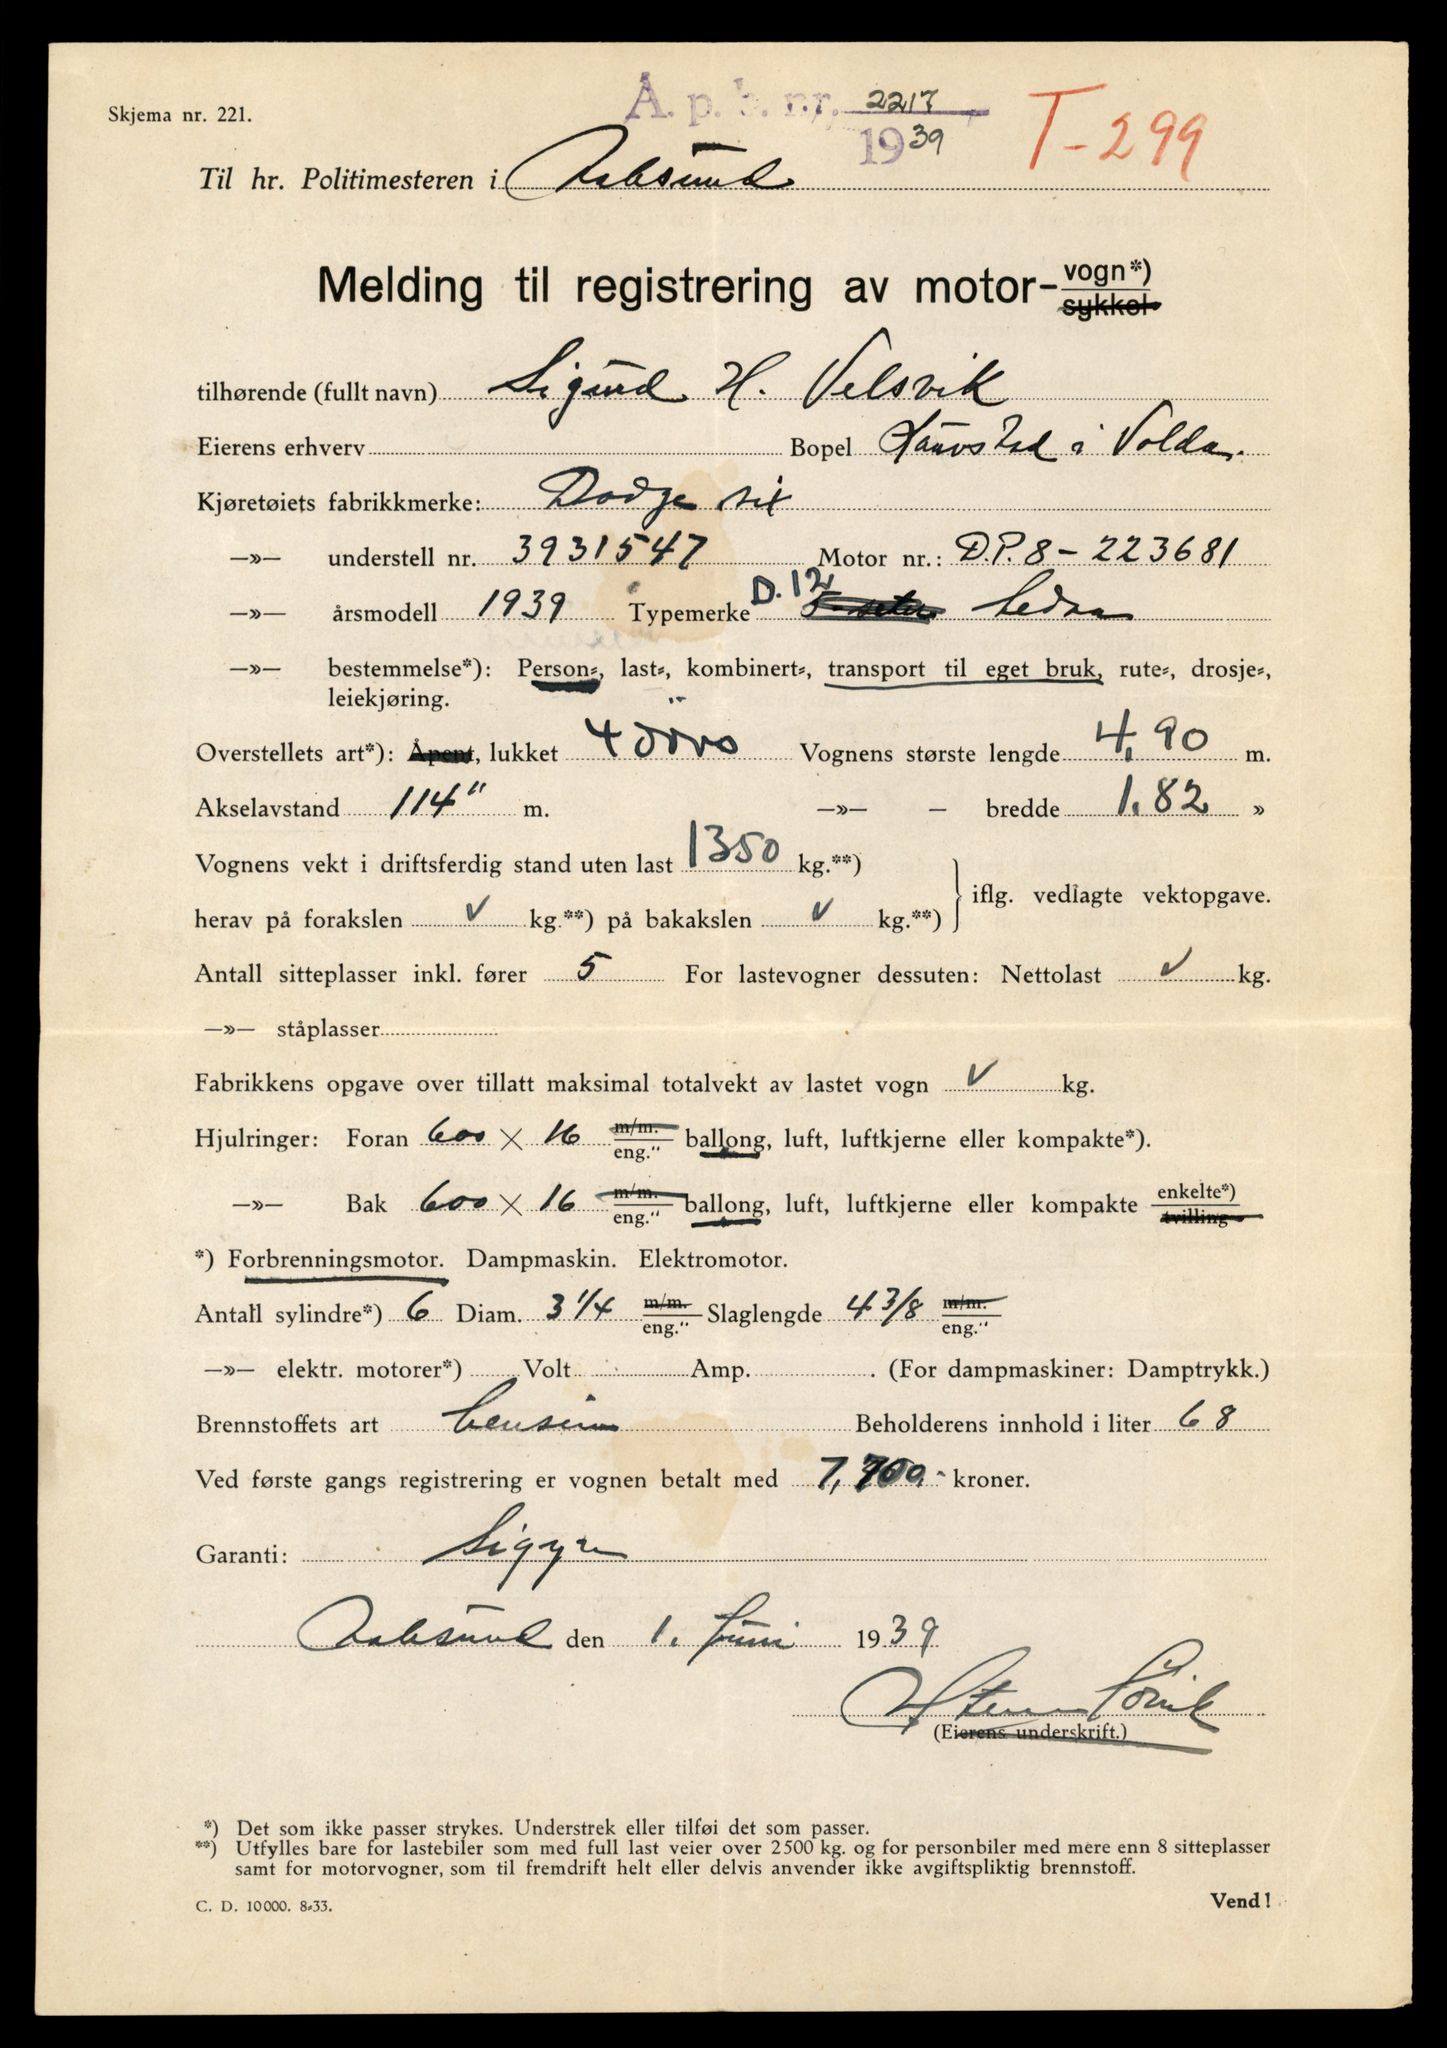 Skjema nr. 221.
A. p. b. nr. 2217
1939
T-299
Til hr. Politimesteren i Aalesund
Melding til registrering av motor- vogn*)
sykkel
tilhørende (fullt navn) Sigurd H. Velsvik
Eierens erhverv Bopel Lauvstad i Volda.
Kjøretøiets fabrikkmerke: Dodge six
—»— understell nr. 3931547 Motor nr.: D.P. 8-223681
—»— årsmodell 1939 Typemerke D. 12 5-seter Sedan
—»— bestemmelse*): Person-, last-, kombinert-, transport til eget bruk, rute-, drosje-,
leiekjøring.
Overstellets art*): Åpent, lukket 4 dörs Vognens største lengde 4,90 m.
Akselavstand 114" m. —»— — bredde 1.82 »
Vognens vekt i driftsferdig stand uten last 1350 kg.**)
herav på forakslen ✓ kg.**) på bakakslen ✓ kg.**) } iflg. vedlagte vektopgave.
Antall sitteplasser inkl. fører 5 For lastevogner dessuten: Nettolast ✓ kg.
—»— ståplasser
Fabrikkens opgave over tillatt maksimal totalvekt av lastet vogn ✓ kg.
Hjulringer: Foran 600 × 16 m/m. eng." ballong, luft, luftkjerne eller kompakte*).
—»— Bak 600 × 16 m/m. eng." ballong, luft, luftkjerne eller kompakte enkelte*) tvilling
*) Forbrenningsmotor. Dampmaskin. Elektromotor.
Antall sylindre*) 6 Diam. 3 1/4 m/m. eng." Slaglengde 4 3/8 m/m. eng."
—»— elektr. motorer*) Volt Amp. . (For dampmaskiner: Damptrykk.)
Brennstoffets art bensin Beholderens innhold i liter 68
Ved første gangs registrering er vognen betalt med 7,700.- kroner.
Garanti: Sigyn
Aalesund den 1. Juni 1939
(Eierens underskrift.)
*) Det som ikke passer strykes. Understrek eller tilføi det som passer.
**) Utfylles bare for lastebiler som med full last veier over 2500 kg. og for personbiler med mere enn 8 sitteplasser
samt for motorvogner, som til fremdrift helt eller delvis anvender ikke avgiftspliktig brennstoff.
C. D. 10000. 8-33.
Vend!